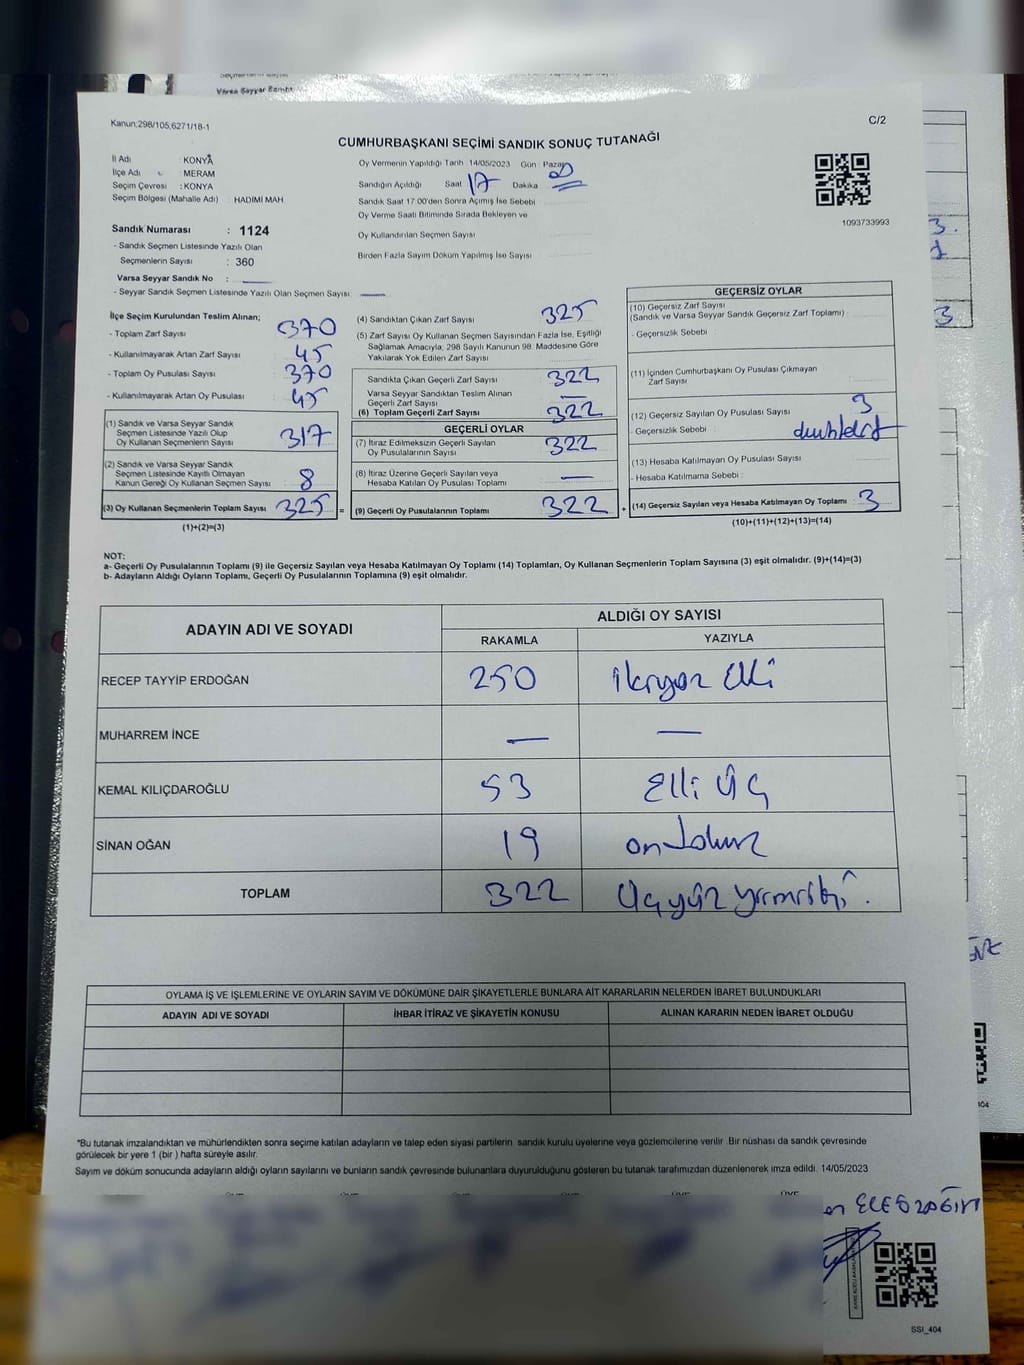 Kanun;298/105,6271/18-1
C/2
CUMHURBAŞKANI SEÇİMİ SANDIK SONUÇ TUTANAĞI
İl Adı : KONYA
İlçe Adı : MERAM
Seçim Çevresi : KONYA
Seçim Bölgesi (Mahalle Adı) : HADIMI MAH
Oy Vermenin Yapıldığı Tarih 14/05/2023 Gün : Pazar
Sandığın Açıldığı Saat 17 Dakika 00
Sandık Saat 17:00'den Sonra Açımış İse Sebebi
Oy Verme Saati Bitiminde Sırada Bekleyen ve
Oy Kullandırılan Seçmen Sayısı
Birden Fazla Sayım Döküm Yapılmış İse Sayısı
1093733993
Sandık Numarası : 1124
- Sandık Seçmen Listesinde Yazılı Olan
Seçmenlerin Sayısı : 360
Varsa Seyyar Sandık No : —
- Seyyar Sandık Seçmen Listesinde Yazılı Olan Seçmen Sayısı —
İlçe Seçim Kurulundan Teslim Alınan;
- Toplam Zarf Sayısı 370
- Kullanılmayarak Artan Zarf Sayısı 45
- Toplam Oy Pusulası Sayısı 370
- Kullanılmayarak Artan Oy Pusulası 45
(1) Sandık ve Varsa Seyyar Sandık
Seçmen Listesinde Yazılı Olup
Oy Kullanan Seçmenlerin Sayısı 317
(2) Sandık ve Varsa Seyyar Sandık
Seçmen Listesinde Kayıtlı Olmayan
Kanun Gereği Oy Kullanan Seçmen Sayısı : 8
(3) Oy Kullanan Seçmenlerin Toplam Sayısı 325 =
(1)+(2)=(3)
(4) Sandıktan Çıkan Zarf Sayısı 325
(5) Zarf Sayısı Oy Kullanan Seçmen Sayısından Fazla İse, Eşitliği
Sağlamak Amacıyla; 298 Sayılı Kanunun 98. Maddesine Göre
Yakılarak Yok Edilen Zarf Sayısı
Sandıkta Çıkan Geçerli Zarf Sayısı 322
Varsa Seyyar Sandıktan Teslim Alınan
Geçerli Zarf Sayısı —
(6) Toplam Geçerli Zarf Sayısı 322
GEÇERLİ OYLAR
(7) İtiraz Edilmeksizin Geçerli Sayılan
Oy Pusulalarının Sayısı 322
(8) İtiraz Üzerine Geçerli Sayılan veya
Hesaba Katılan Oy Pusulası Toplamı —
(9) Geçerli Oy Pusulalarının Toplamı 322 +
GEÇERSİZ OYLAR
(10) Geçersiz Zarf Sayısı
(Sandık ve Varsa Seyyar Sandık Geçersiz Zarf Toplamı)
- Geçersizlik Sebebi
(11) İçinden Cumhurbaşkanı Oy Pusulası Çıkmayan
Zarf Sayısı
(12) Geçersiz Sayılan Oy Pusulası Sayısı 3
- Geçersizlik Sebebi :
(13) Hesaba Katılmayan Oy Pusulası Sayısı
- Hesaba Katılmama Sebebi :
(14) Geçersiz Sayılan veya Hesaba Katılmayan Oy Toplamı : 3
(10)+(11)+(12)+(13)=(14)
NOT:
a- Geçerli Oy Pusulalarının Toplamı (9) ile Geçersiz Sayılan veya Hesaba Katılmayan Oy Toplamı (14) Toplamları, Oy Kullanan Seçmenlerin Toplam Sayısına (3) eşit olmalıdır. (9)+(14)=(3)
b- Adayların Aldığı Oyların Toplamı, Geçerli Oy Pusulalarının Toplamına (9) eşit olmalıdır.
ADAYIN ADI VE SOYADI ALDIĞI OY SAYISI
RAKAMLA YAZIYLA
RECEP TAYYİP ERDOĞAN 250 ikiyüz Elli
MUHARREM İNCE — —
KEMAL KILIÇDAROĞLU 53 Elli Üç
SİNAN OĞAN 19 on dokuz
TOPLAM 322 Üçyüz yirmiiki.
OYLAMA İŞ VE İŞLEMLERİNE VE OYLARIN SAYIM VE DÖKÜMÜNE DAİR ŞİKAYETLERLE BUNLARA AİT KARARLARIN NELERDEN İBARET BULUNDUKLARI
ADAYIN ADI VE SOYADI İHBAR İTİRAZ VE ŞİKAYETİN KONUSU ALINAN KARARIN NEDEN İBARET OLDUĞU
*Bu tutanak imzalandıktan ve mühürlendikten sonra seçime katılan adayların ve talep eden siyasi partilerin sandık kurulu üyelerine veya gözlemcilerine verilir. Bir nüshası da sandık çevresinde
görülecek bir yere 1 (bir ) hafta süreyle asılır.
Sayım ve döküm sonucunda adayların aldığı oyların sayılarını ve bunların sandık çevresinde bulunanlara duyurulduğunu gösteren bu tutanak tarafımızdan düzenlenerek imza edildi. 14/05/2023
SSI_404